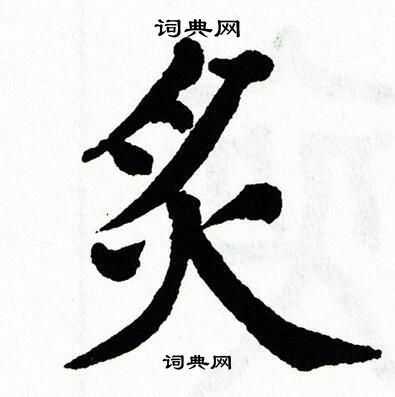 词典网
炙
词典网